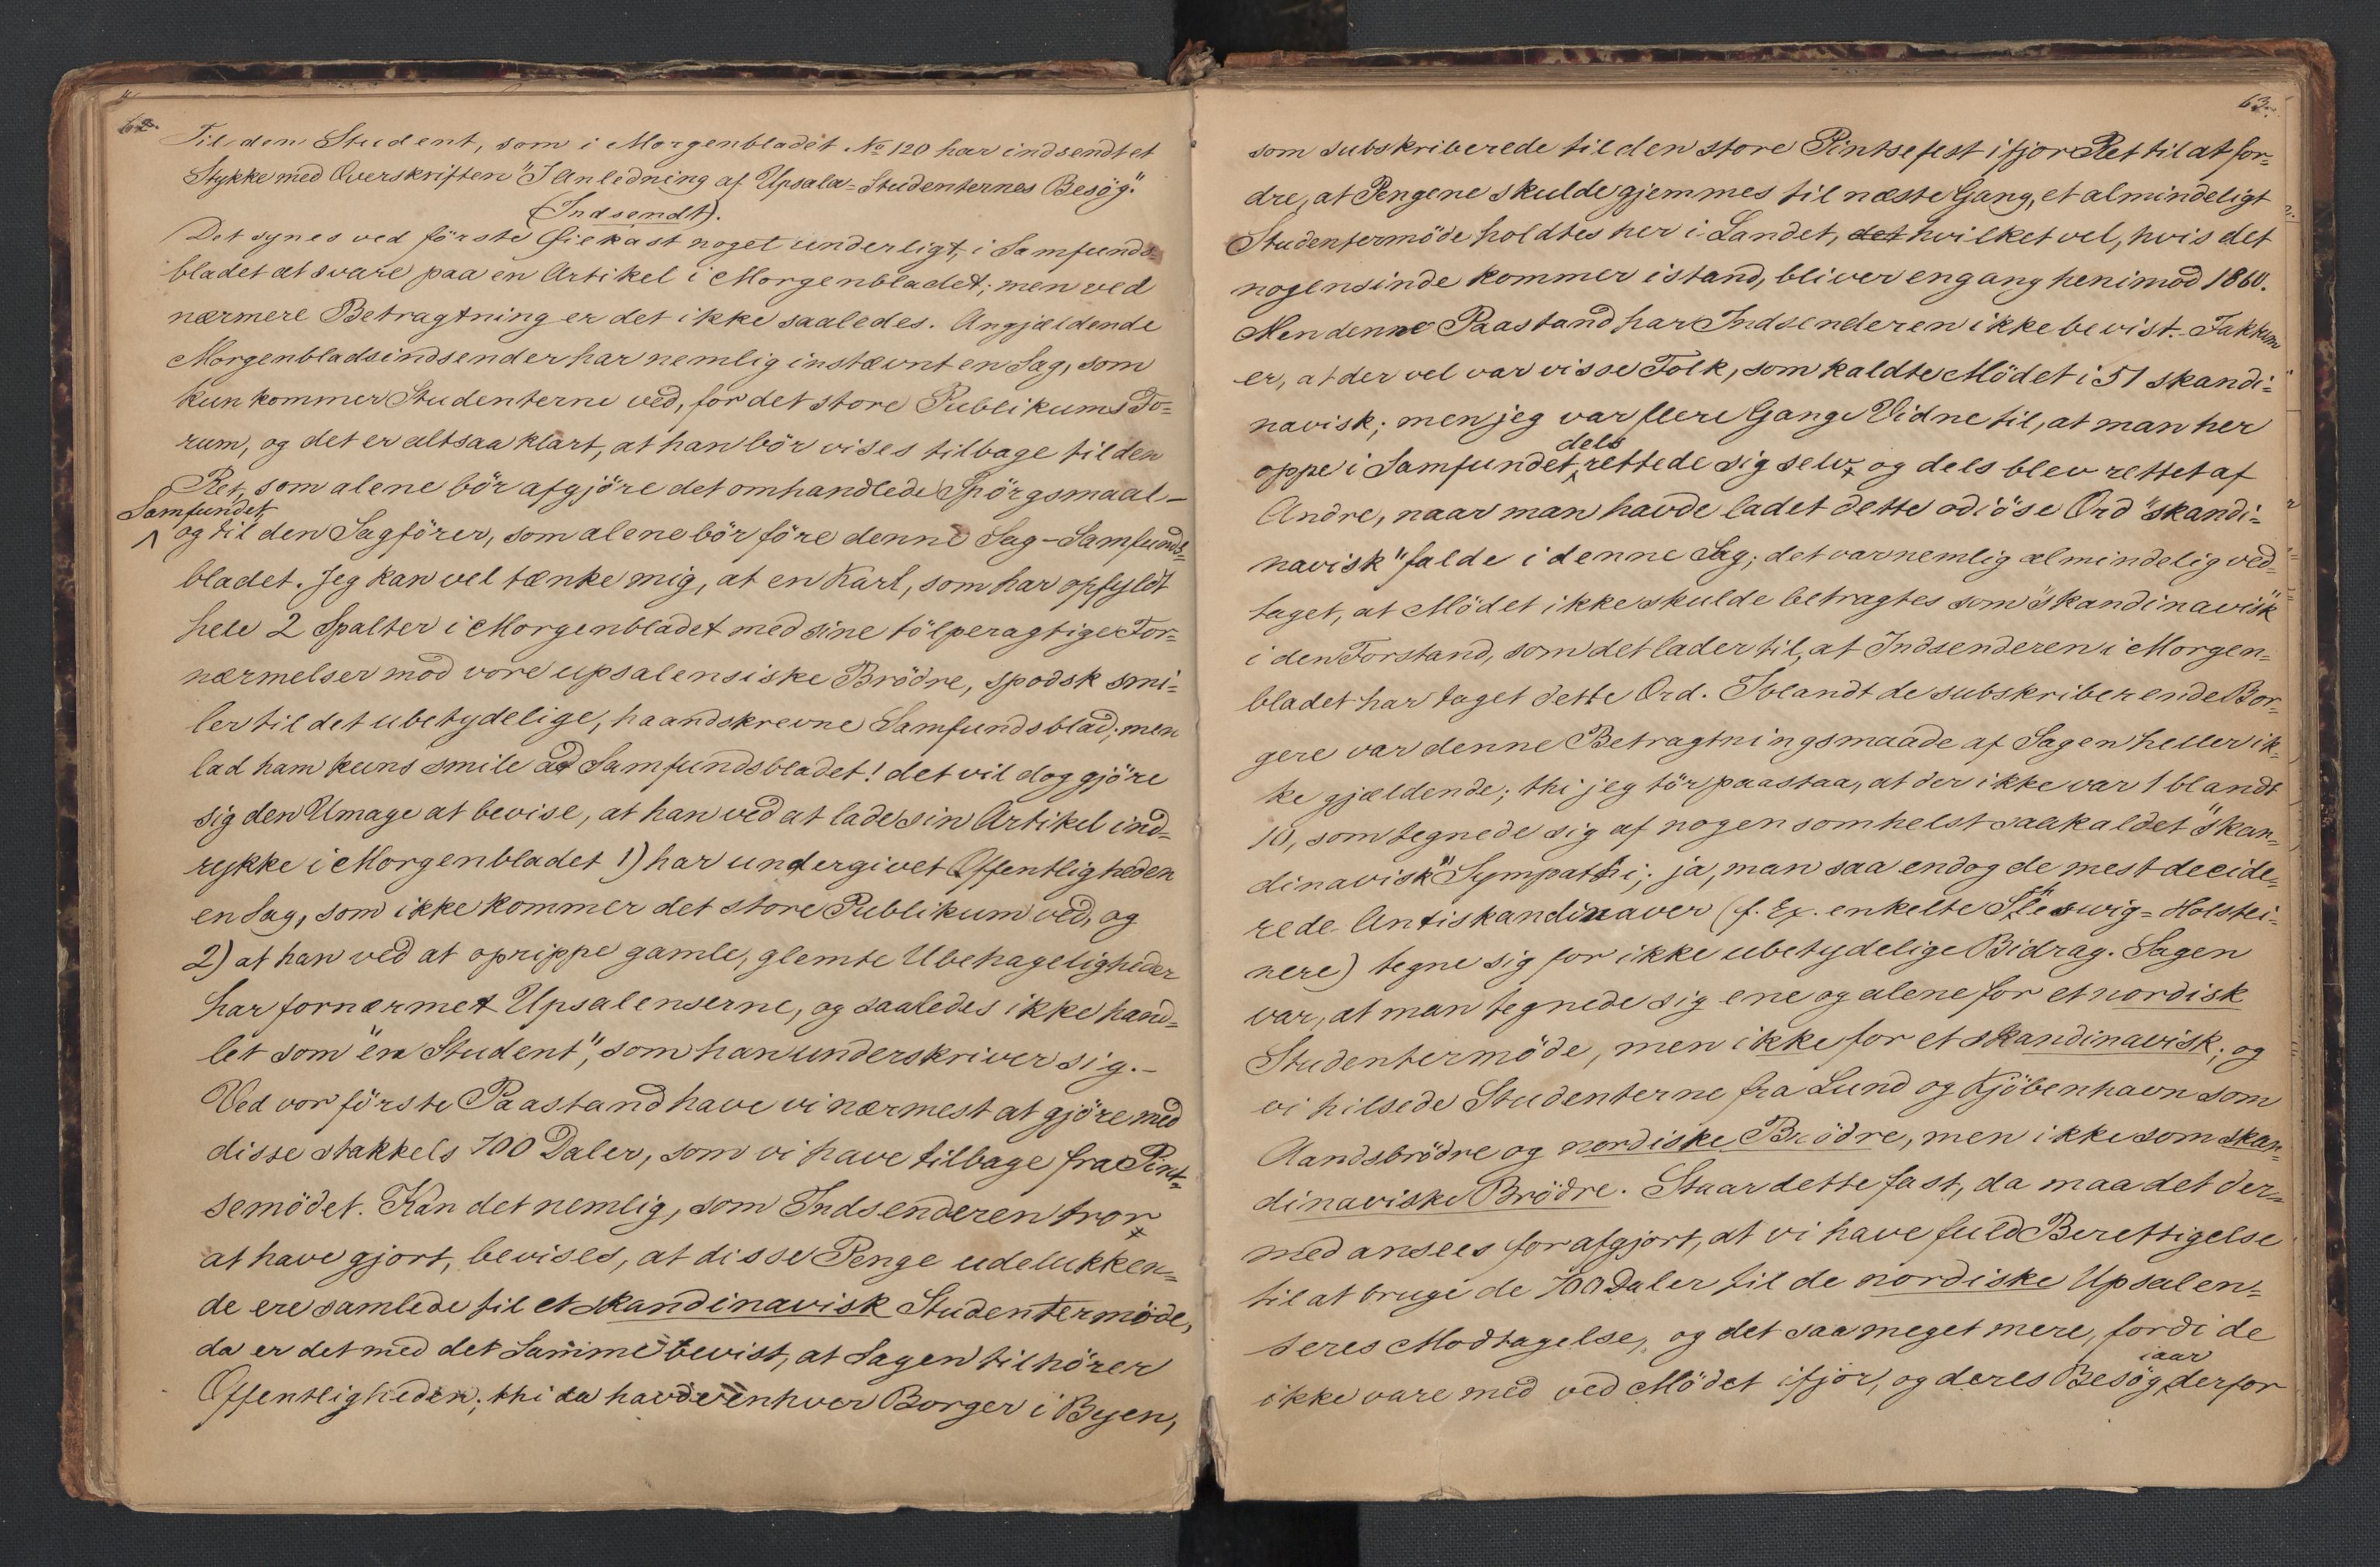 62.
Til den Student, som i Morgenbladet No 120 har indsendt et
Stykke med Overskriften "I Anledning af Upsala-Studenternes Besög."
(Indsendt).
Det synes ved förste Öiekast noget underligt, i Samfunds-
bladet at svare paa en Artikel i Morgenbladet; men ved
nærmere Betragtning er det ikke saaledes. Angjældende
Morgenbladsindsender har nemlig instævnt en Sag, som
kun kommer Studenterne ved, for det store Publikums Fo-
rum, og det er altsaa klart, at han bör vises tilbage til den
Ret, som alene bör afgjöre det omhandlede Spörgsmaal -
Samfundet
og til den Sagförer, som alene bör före denne Sag - Samfunds-
bladet. Jeg kan vel tænke mig, at en Karl, som har opfyldt
hele 2 Spalter i Morgenbladet med sine tölperagtige For-
nærmelser mod vore upsalensiske Brödre, spodsk smi-
ler til det ubetydelige, haandskrevne Samfundsblad; men
lad ham kuns smile ad Samfundsbladet! det vil dog gjöre
sig den Umage at bevise, at han ved at lade sin Artikel ind-
rykke i Morgenbladet 1) har undergivet Offentligheden
en Sag, som ikke kommer det store Publikum ved, og
2) at han ved at oprippe gamle, glemte Ubehageligheder
har fornærmet Upsalenserne, og saaledes ikke hand-
let som "en Student", som han underskriver sig. -
Ved vor förste Paastand have vi nærmest at gjöre med
disse stakkels 700 Daler, som vi have tilbage fra Pint-
semödet. Kan det nemlig, som Indsenderen tror
at have gjort, bevises, at disse Penge udelukken-
de ere samlede til et skandinavisk Studentermöde,
da er det med det Samme bevist, at Sagen tilhörer
Offentligheden; thi da havde enhver Borger i Byen,
63.
som subskriberede til den store Pintsefest ifjor Ret til at for-
dre, at Pengene skulde gjemmes til næste Gang, et almindeligt
Studentermöde holdtes her i Landet, det hvilket vel, hvis det
nogensinde kommer istand, bliver engang henimod 1860.
Men denne Paastand har Indsenderen ikke bevist. Faktum
er, at der vel var visse Folk, som kaldte Mödet i 51 skandi-
navisk; men jeg var flere Gange Vidne til, at man her
dels
oppe i Samfundet rettede sig selv, og dels blev rettet af
Andre, naar man havde ladet dette odiöse Ord "skandi-
navisk" falde i denne Sag; det var nemlig almindelig ved-
taget, at Mödet ikke skulde betragtes som "skandinavisk"
i den Forstand, som det lader til, at Indsenderen i Morgen-
bladet har taget dette Ord. Iblandt de subskriberende Bor-
gere var denne Betragtningsmaade af Sagen heller ik-
ke gjældende; thi jeg tör paastaa, at der ikke var 1 blandt
10, som tegnede sig af nogensomhelst saakaldet "skan-
dinavisk" Sympathi; ja, man saa endog de mest decide-
rede Antiskandinaver (f. Ex. enkelte Sleswig-Holstei-
nere) tegne sig for ikke ubetydelige Bidrag. Sagen
var, at man tegnede sig ene og alene for et nordisk
Studentermöde, men ikke for et skandinavisk; og
vi hilsede Studenterne fra Lund og Kjöbenhavn som
Aandsbrödre og nordiske Brödre, men ikke som skan-
dinaviske Brödre. Staar dette fast, da maa det der-
med ansees for afgjort, at vi have fuld Berettigelse
til at bruge de 700 Daler til de nordiske Upsalen-
seres Modtagelse, og det saa meget mere, fordi de
iaar
ikke vare med ved Mödet ifjor, og deres Besög derfor